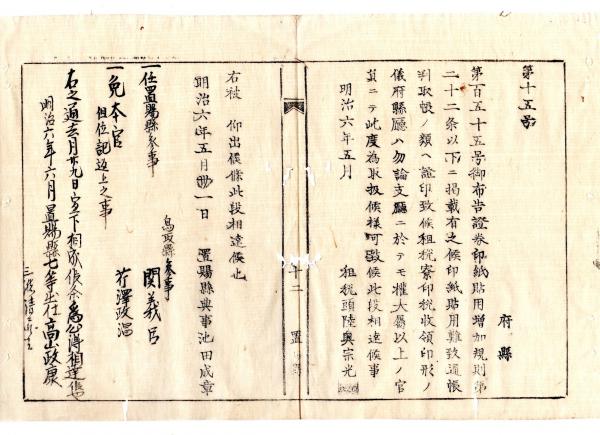 第十五号
府縣
第百五十五号御布告證券印紙貼用増加規則第
二十二条以下ニ掲載有之候印紙貼用難致通帳
判取帳ノ類ヘ證印致候租税寮印税收領印形ノ
儀府縣廳ハ勿論支廳ニ於テモ權大属以上ノ官
員ニテ此度為取扱候様可致候此段相達候事
明治六年五月
租税頭陸奥宗光
十二 置
右被 仰出候條此段相達候也
明治六年五月 一日 置賜縣典事池田成章
鳥取縣参事
一任置賜縣参事 関義臣
一免本官 芹澤政温
但位記返上之事
右之通去月廿九日宣下相成候条為心得相達候也
明治六年六月 置賜縣七等出仕高山政康